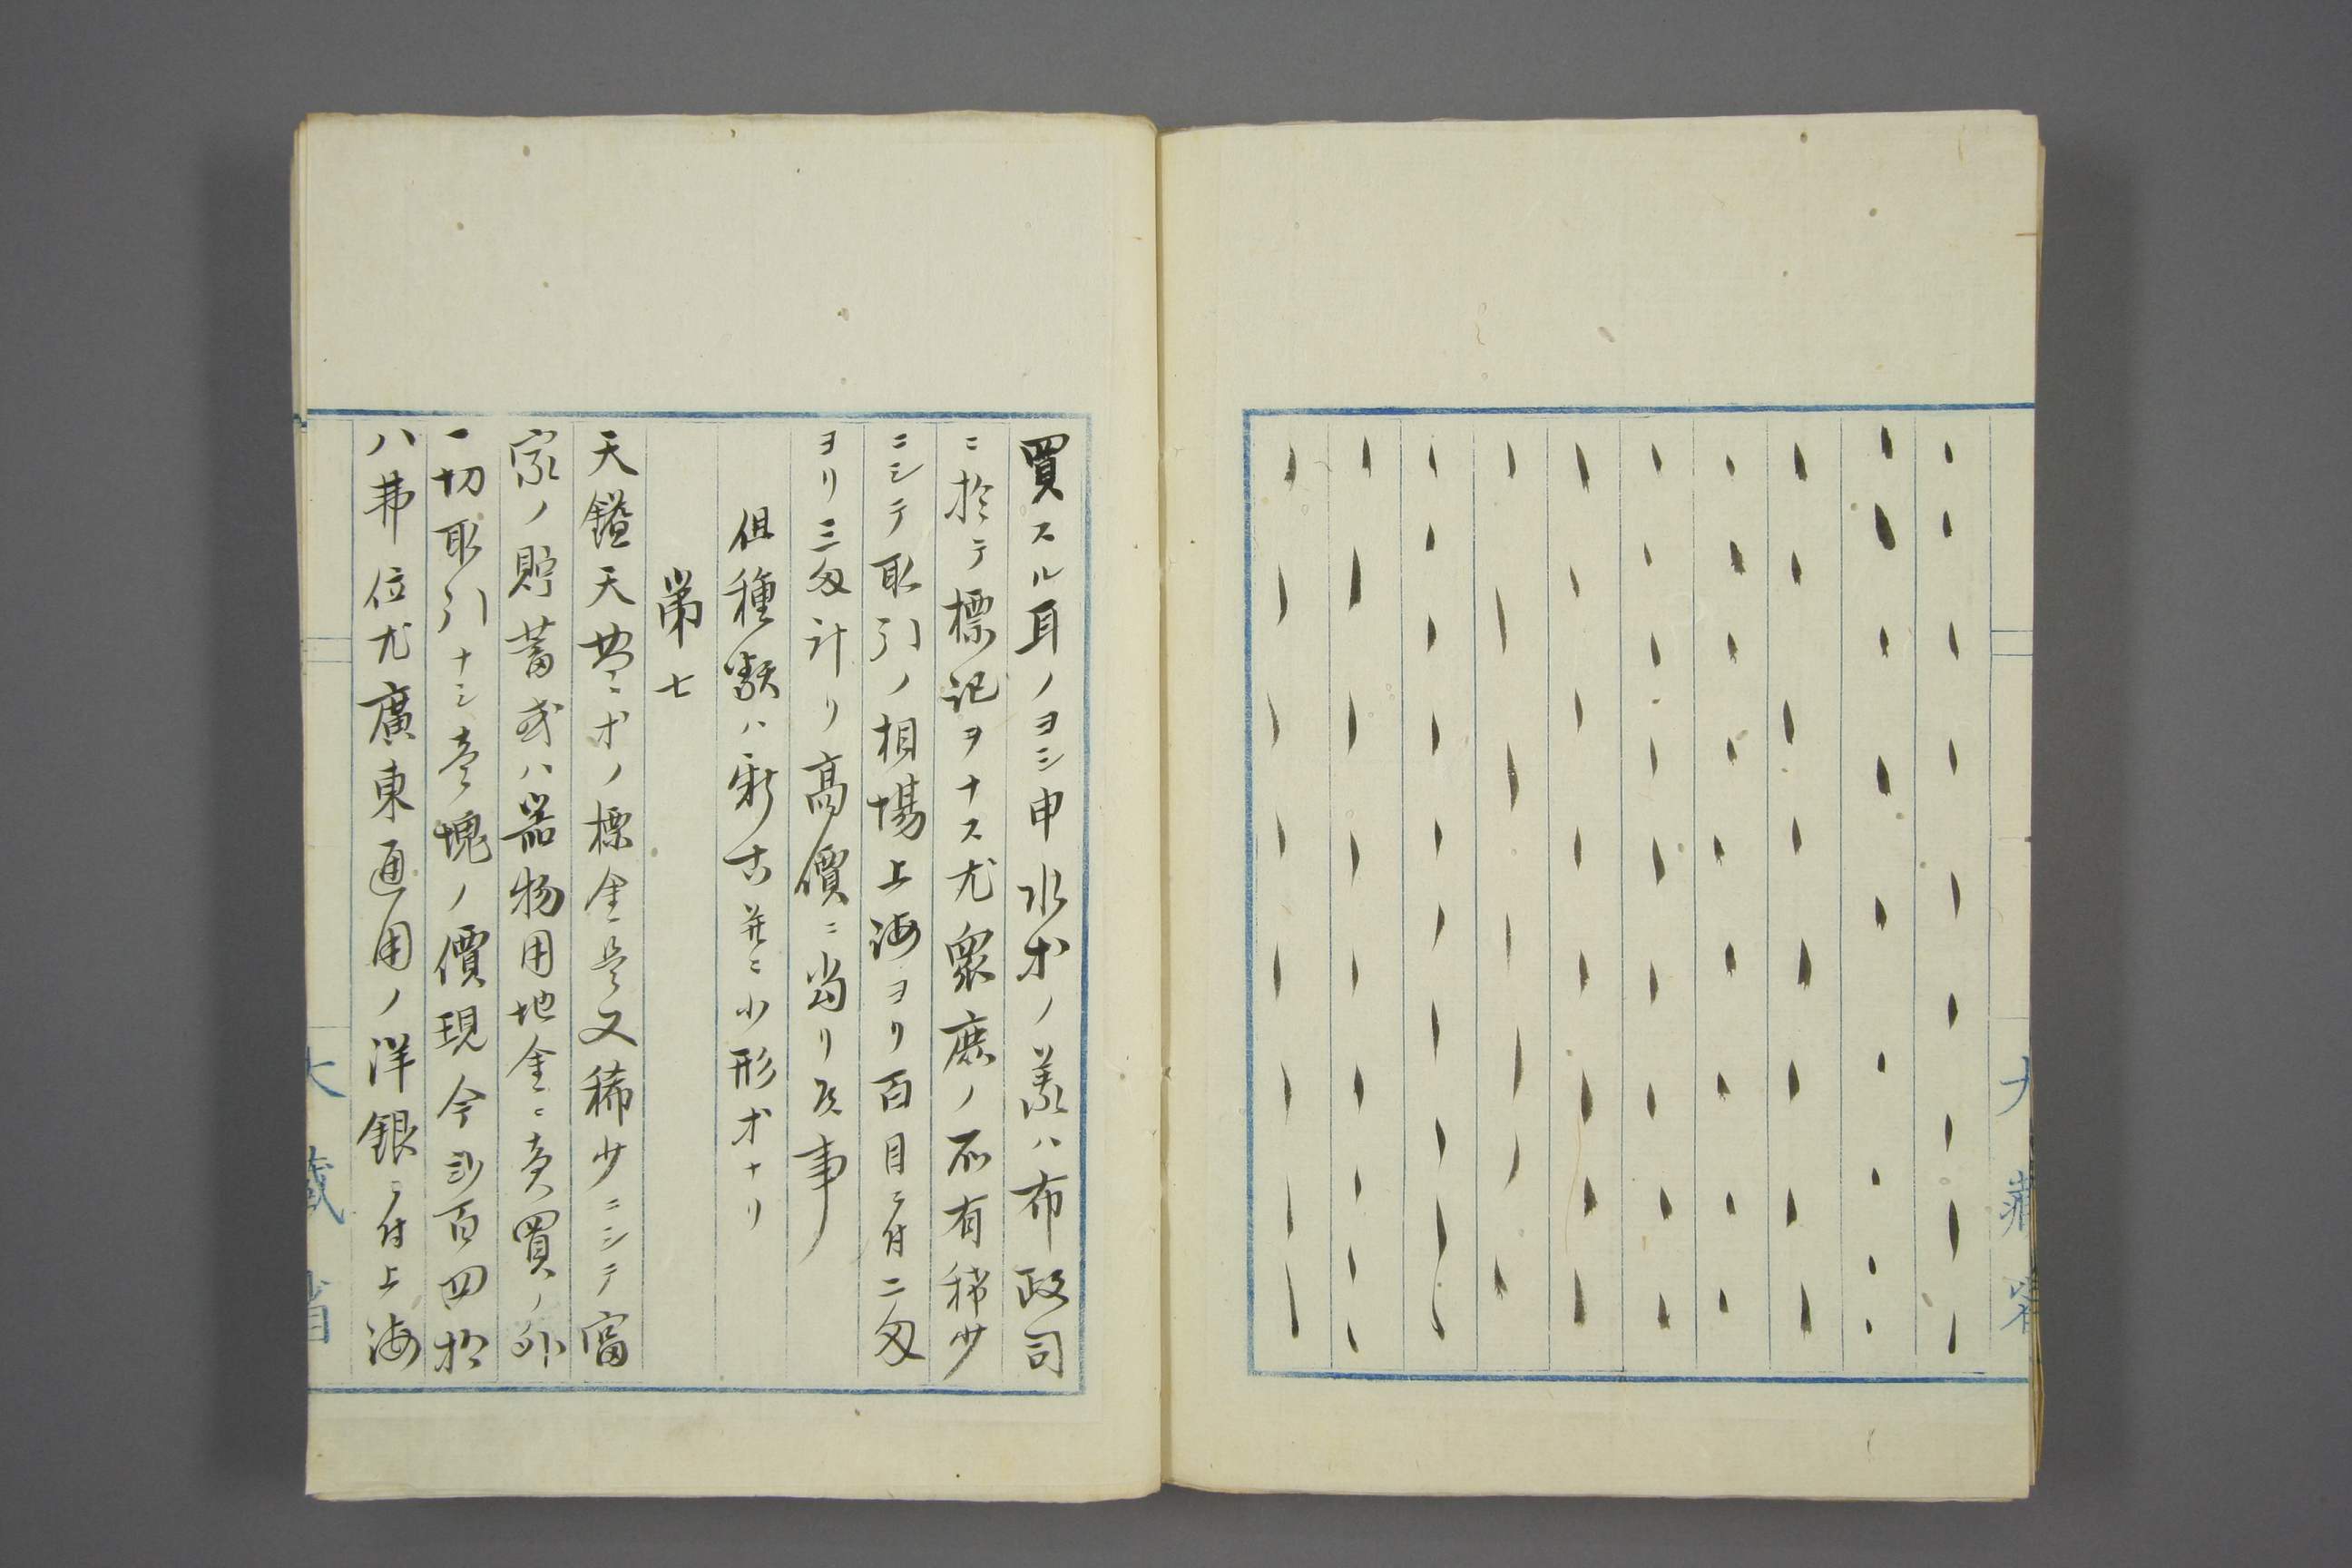 大藏省
買スル耳ノヨシ申水才ノ義ハ布政司
ニ於テ標記ヲナス尤衆庶ノ所有稀少
ニシテ取引ノ相場上海ヨリ百目ニ付二匁
ヨリ三匁計リ高價ニ当リ候事
但種類ハ新古并ニ小形才ナリ
第七
天鎰天 才ノ標金是又稀少ニシテ富
家ノ貯蓄或ハ器物用地金ニ売買ノ外
一切取引ナシ壱塊ノ價現今 百四拾
八弗位尤廣東通用ノ洋銀ニ付上海
大藏省